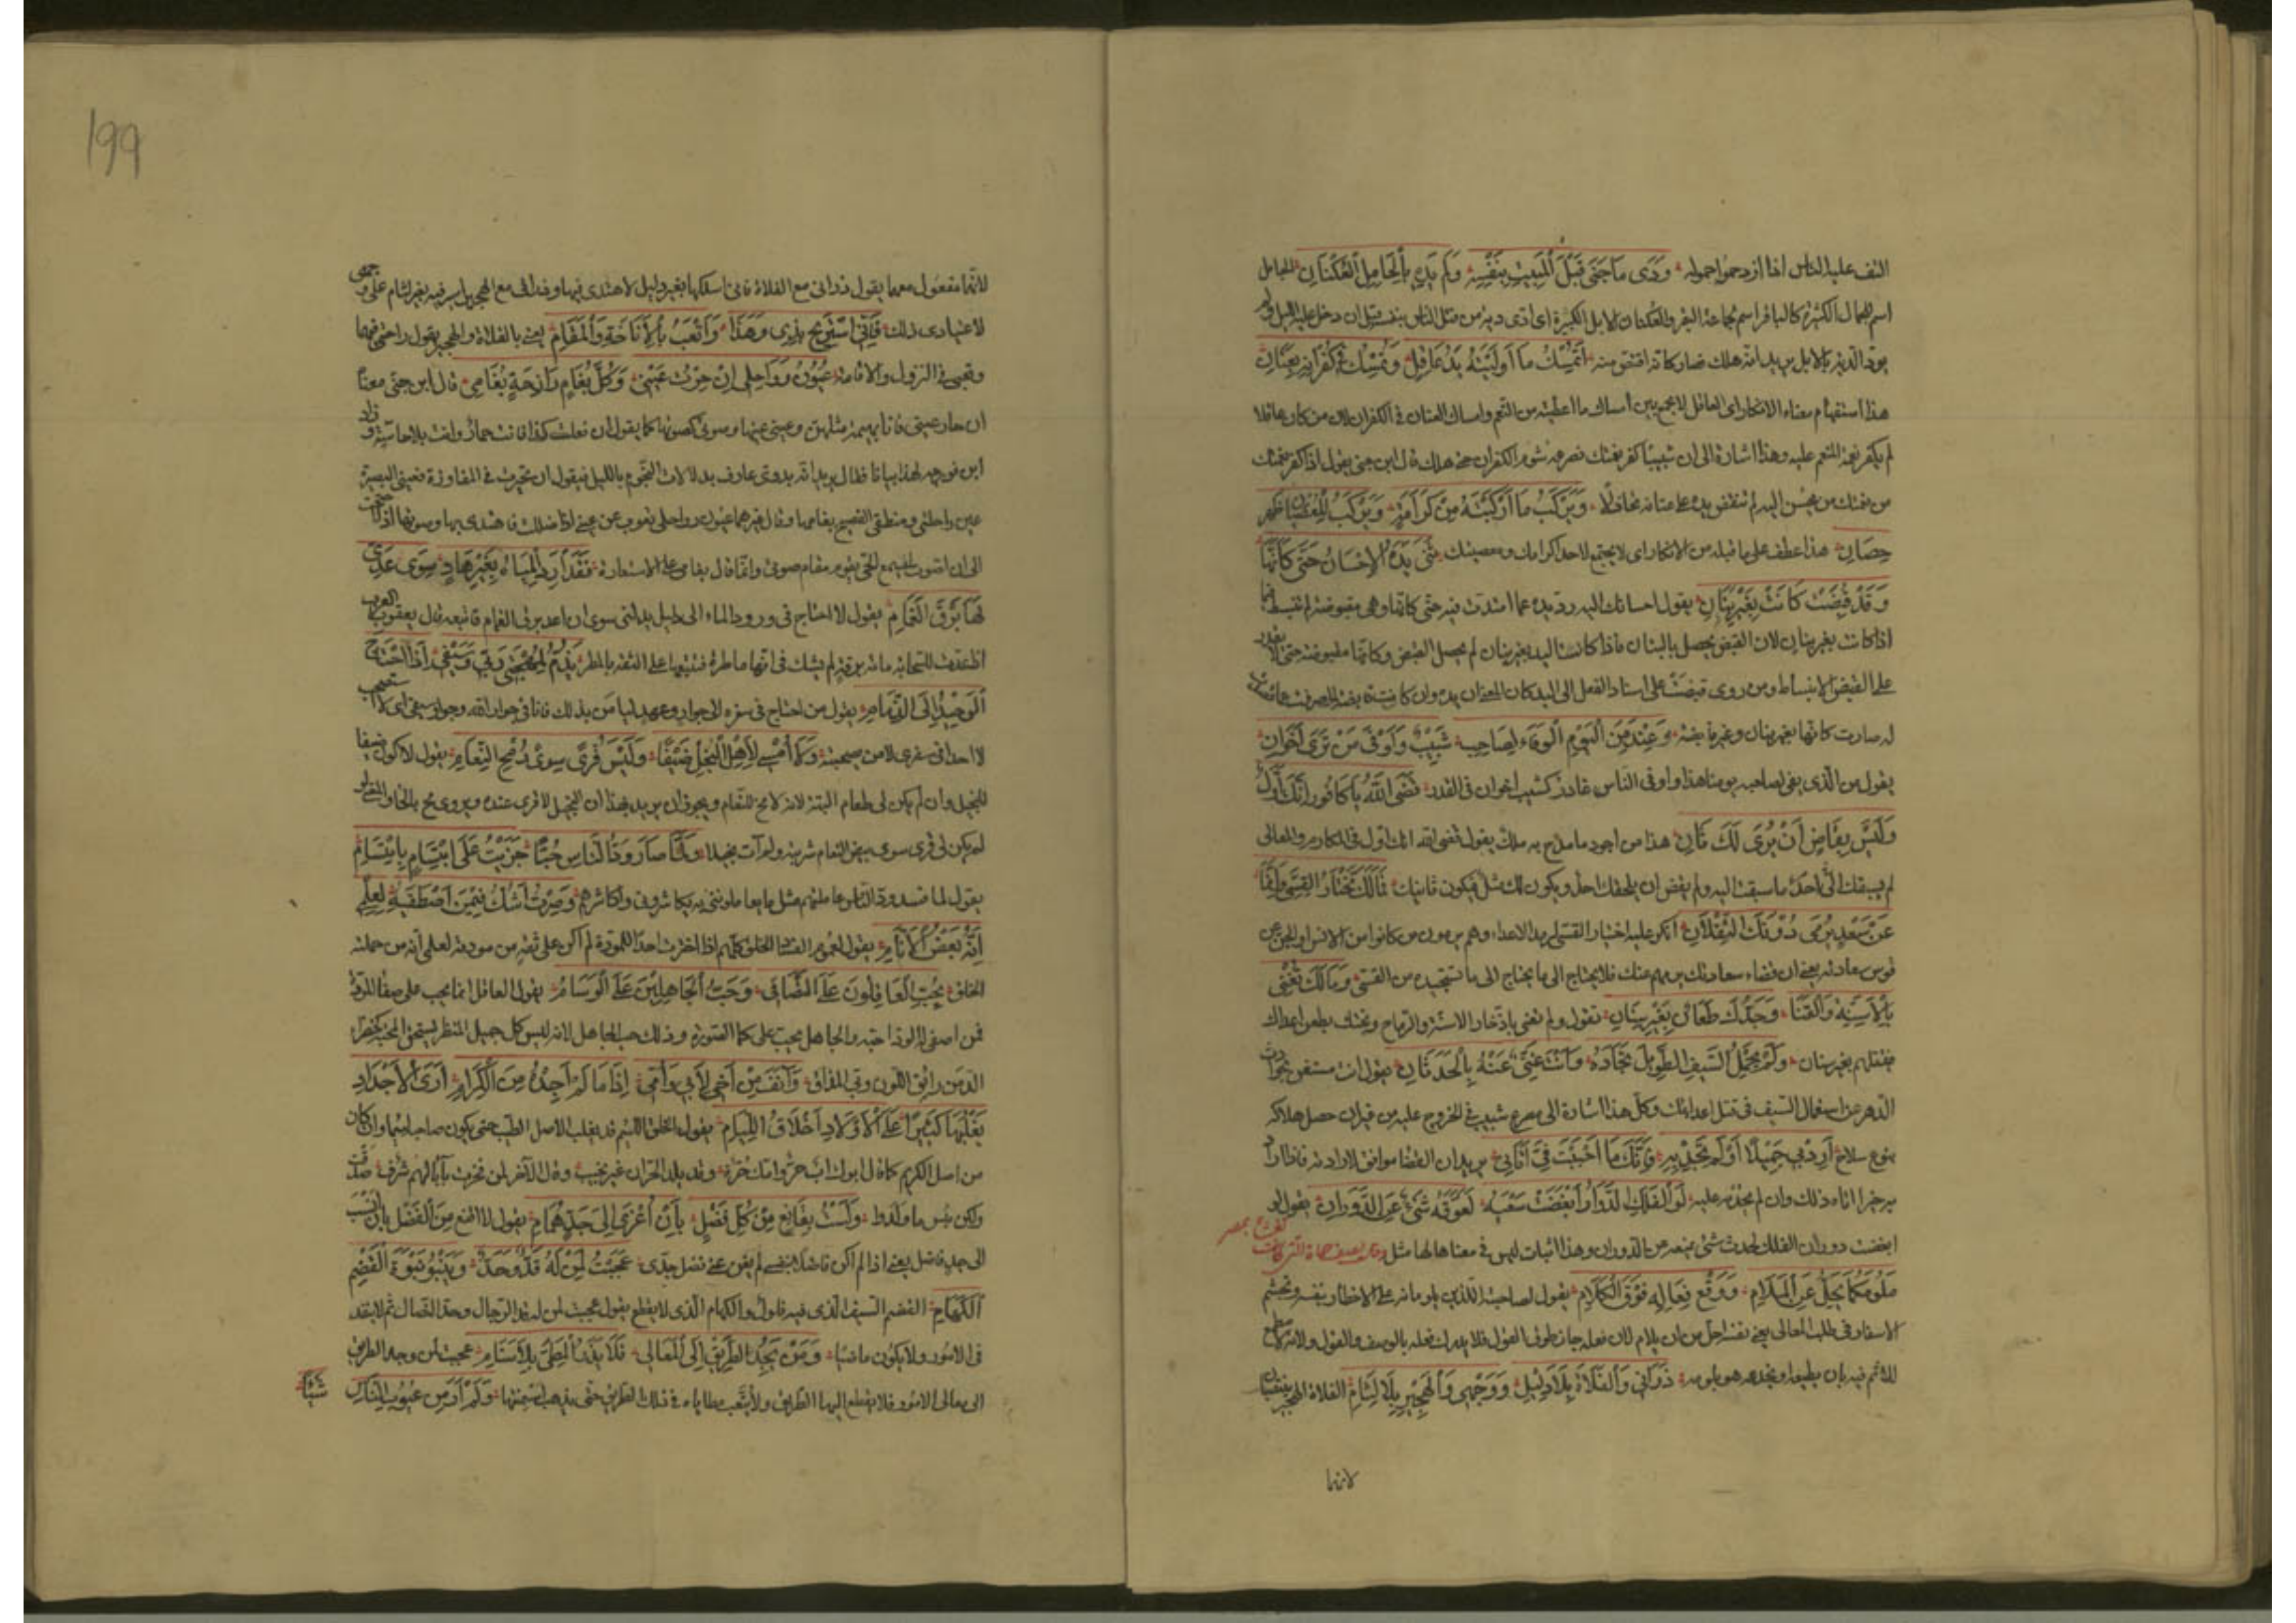 التف عليه الناس اذا ازدحموا حوله وَدَى مَا جَنَى قَبْلَ الْمَبِيتِ بِنَفْسِهِ وَلَمْ يَدِهِ بِالْجَامِلِ الْعَكَنَانِ الجامل
اسم للجمال الكثيرة كالباقر اسم لجماعة البقر والعكنان الابل الكثيرة اى ادى دية من قتل الناس بنفسه قبل ان دخل عليه الليل ولم
يود الدية بالابل يريد انه هلك فصار كانه اقتص منه اَتُمْسِكُ مَا اَوْلَيْتَهُ يَدُ عَاقِلٍ وَتُمْسِكُ فِى كُفْرَانِهِ بِعِنَانِ
هذا استفهام معناه الانكار اى العاقل لا يجمع بين امساك ما اعطيته من النعم وامساك العنان فى الكفران لان من كان عاقلا
لم يكفر نعمة المنعم عليه وهذا اشارة الى ان شبيبا كفر نعمتك فصرعه شوم الكفران حتى هلك قال ابن جنى يقول اذا كفر نعمتك
من نعمتك من يحسن اليه لم تنقبض يده على عنانه تخاذلا وَيَرْكَبُ مَا اَرْكَبْتَهُ مِنْ كَرَامَةٍ وَيَرْكَبُ لِلْعِصْيَانِ ظَهْرَ
حِصَانِ هذا عطف على ما قبله من الانكار اى لا يجتمع لاحد اكرامك ومعصيتك ثَنَى يَدَهُ الْاِحْسَانُ حَتَّى كَاَنَّهَا
وَقَدْ قُبِضَتْ كَانَتْ بِغَيْرِ بَنَانِ يقول احسانك اليه رد يده عما امتدت فيه حتى كانها وهى مقبوضة لم تنبسط
اذا كانت بغير بنان لان القبض يحصل بالبنان فاذا كانت اليد بغير بنان لم يحصل القبض وكانها مقبوضة حتى لا يقدر
على القبض والانبساط ومن روى قبضت على اسناد الفعل الى اليد كان المعنى ان يده وان كانت
له صارت كانها بغير بنان وغير قابضة وَعِنْدَ مَنِ الْيَوْمَ الْوَفَاءُ لِصَاحِبٍ شَبِيبٌ وَاَوْفَى مَنْ تَرَى اَخَوَانِ
يقول من الذى يفى لصاحبه يومنا هذا واوفى الناس غادر كشبيب اخوان فى الغدر قَضَى اللهُ يَا كَافُورُ اَنَّكَ اَوَّلٌ
وَلَيْسَ بِقَاضٍ اَنْ يُرَى لَكَ ثَانِ هذا من اجود ما مدح به ملك يقول قضى الله انك اول فى المكارم والمعالى
لم يسبقك الى احد ما سبقت اليه ولم يقض ان يلحقك احد ويكون لك مثل فيكون ثانيك فَمَا لَكَ تَخْتَارُ الْقِسِىَّ وَاِنَّمَا
عَنِ السَّعْدِ يَرْمِى دُونَكَ الثَّقَلَانِ انكر عليه اختيار القسى لرمى الاعداء وهم يرمون من كانوا من الانس والجن عن
قوس سعادته يعنى ان قضاء سعادتك يرميهم عنك فلا تحتاج الى ما يحتاج الى ما تستجيده من القسى وَمَا لَكَ تُعْنَى
بِالْاَسِنَّةِ وَالْقَنَا وَجَدُّكَ طَعَّانٌ بِغَيْرِ سِنَانِ يقول ولم تعنى باذخار الاسنة والرماح وبختك يطعن اعداك
فيقتلهم بغير سنان وَلِمْ تَحْمِلُ السَّيْفَ الطَّوِيلَ نِجَادُهُ وَاَنْتَ غَنِىٌّ عَنْهُ بِالْحَدَثَانِ يقول انت مستغن بحوادث
الدهر عن استعمال السيف فى قتل اعدائك وكل هذا اشارة الى مصرع شبيب فى الخروج عليه من غير ان حصل هلاكه
بنوع سلاح اَرِدْ لِى جَمِيلًا اَوْ لَمْ تَجُدْ بِهِ فَاِنَّكَ مَا اَحْبَبْتَ فِىَّ اَتَانِى يريد ان القضا موافق لارادته فاذا اراد
به خيرا اتاه ذلك وان لم يجد به عليه لَوِ الْفَلَكَ الدَّوَّارَ اَبْغَضْتَ سَعْيَهُ لَعَوَّقَهُ شَىْءٌ عَنِ الدَّوَرَانِ يقول لو
ابغضت دوران الفلك لحدث شئ يمنعه من الدوران وهذا ابيات ليس فى معناها لها مثل وقال يصف حماه التى كانت تعرض بمصر
مَلُومُكُمَا يَجِلُّ عَنِ الْمَلَامِ وَوَقْعُ فَعَالِهِ فَوْقَ الْكَلَامِ يقول لصاحبيه اللذين يلومانه على الاخطار بنفسه وتجشم
الاسفار فى طلب المعالى يعنى نفسه اجل من ان يلام لان فعله جاز طوق القول فلا يدرك فعله بالوصف والقول ولانه لا مطمع
للائم فيه بان يطيعه او يخدعه هو بلومه ذَرَانِى وَالْفَلَاةَ بِلَا دَلِيلٍ وَوَجْهِى وَالْهَجِيرَ بِلَا لِثَامِ الفلاة والهجير ينتصبان
لانهما
199
لانهما مفعول معهما يقول ذرانى مع الفلاة فانى اسلكها بغير دليل لاهتدائى فيها وذرانى مع الهجير اسير فيه بغير لثام على وجهى
لاعتيادى ذلك فَاِنِّى اَسْتَرِيحُ بِذِى وَهَذَا وَاَتْعَبُ بِالْاِنَاخَةِ وَالْمَقَامِ يعنى بالفلاة والهجير يقول راحتى فيهما
وتعبى فى النزول والاقامة عُيُونُ رَوَاحِلِى اِنْ حِرْتُ عَيْنِى وَكُلُّ بُغَامِ رَازِحَةٍ بُغَامِى قال ابن جنى معناه
ان حارت عينى فانا بهيمة مثلهن وعينى عينها وصوتى كصوتها كما يقول ان فعلت كذا فانت حمار وانت بلا حاسة وزاد
ابن فورجه لهذا بيانا فقال يريد انه بدوى عارف بدلالات النجوم بالليل فيقول ان تحيرت فى المفازة فعينى البصيرة
عين راحلتى ومنطقى الفصيح بغامها وقال غيرهما عيون رواحلى تنوب عن عينى اذا ضللت فاهتدى بها وصوتها اذا احتجت
الى ان اصوت ليسمع الحى يقوم مقام صوتى وانما قال بغامى على الاستعارة فَقَدْ اَرِدُ الْمِيَاهَ بِغَيْرِ هَادٍ سِوَى عَدِّى
لَهَا بَرْقَ الْغَمَامِ يقول لا احتاج فى ورود الماء الى دليل يدلنى سوى ان اعد برق الغمام فاتبعه قال يعقوب العرب
اذا عدت للسحابة مائة برقة لم يشك فى انها ماطرة فتتبعها على الثقة بالمطر يُذِمُّ لِمُهْجَتِى رَبِّى وَسَيْفِى اِذَا احْتَاجَ
الْوَحِيدُ اِلَى الذِّمَامِ يقول من احتاج فى سفره الى جوار وعهد ليامن بذلك فانا فى جوار الله وجوار سيفى اى لا استصحب
لا احدا فى سفرى لامن بصحبته وَلَا اُمْسِى لِاَهْلِ الْبُخْلِ ضَيْفًا وَلَيْسَ قِرًى سِوَى مُخِّ النَّعَامِ يقول لا اكون ضيفا
للبخيل وان لم يكن لى طعام البتة لانه لا مخ للنعام ويجوز ان يريد بهذا ان البخيل لا قرى عنده ويروى مح بالحاء والمعنى لو
لم يكن لى قرى سوى بيض النعام شربته ولم آت بخيلا وَلَمَّا صَارَ وُدُّ النَّاسِ خِبًّا جَزَيْتُ عَلَى ابْتِسَامٍ بِابْتِسَامِ
يقول لما فسد ود الناس عاملتهم بمثل ما يعاملوننى به يكاشروننى واكاشرهم وَصِرْتُ اَشُكُّ فِيمَنْ اَصْطَفِيهِ لِعِلْمِى
اَنَّهُ بَعْضُ الْاَنَامِ يقول لعموم الفساد الخلق كلهم اذا اخترت احدا للمودة لم اكن على ثقة من مودته لعلمى انه من جملة
الخلق يُحِبُّ الْعَاقِلُونَ عَلَى التَّصَافِى وَحُبُّ الْجَاهِلِينَ عَلَى الْوَسَامِ يقول العاقل انما يحب على صفاء المودة
فمن اصفى له الود احبه والجاهل يحب على جمال الصورة وذلك حب الجاهل لانه ليس كل جميل المنظر يستحق المحبة كخضراء
الدمن رائق اللون وبى المذاق وَآنَفُ مِنْ اَخِى لِاَبِى وَاُمِّى اِذَا مَا لَمْ اَجِدْهُ مِنَ الْكِرَامِ اَرَى الْاَجْدَادَ
يَغْلِبُهَا كَثِيرًا عَلَى الْاَوْلَادِ اَخْلَاقُ اللِّئَامِ يقول الخلق اللئيم قد يغلب الاصل الطيب حتى يكون صاحبه لئيما وان كان
من اصل الكريم كما قال ابوك اب حر وامك حرة وقد يلد الحران غير نجيب وقال الآخر لئن فخرت بآباء لهم شرف صدقت
ولكن بئس ما ولدوا وَلَسْتُ بِقَانِعٍ مِنْ كُلِّ فَضْلٍ بِاَنْ اُعْزَى اِلَى جَدٍّ هُمَامِ يقول لا اقنع من الفضل بان انسب
الى جد فاضل يعنى اذا لم اكن فاضلا بنفسى لم يغن عنى فضل جدى عَجِبْتُ لِمَنْ لَهُ قَدٌّ وَحَدٌّ وَيَنْبُو نَبْوَةَ الْقَضِمِ
الْكَهَامِ القضم السيف الذى فيه فلول والكهام الذى لا يقطع يقول عجبت لمن له قد الرجال وحد النصال ثم لا ينفذ
فى الامور ولا يكون ماضيا وَمَنْ يَجِدُ الطَّرِيقَ اِلَى الْمَعَالِى فَلَا يَذَرُ الْمَطِىَّ بِلَا سَنَامِ عجبت لمن وجد الطريق
الى معالى الامور فلا يقطع اليها الطريق ولا يتعب مطاياه فى ذلك الطريق حتى يذهب اسنمتها وَلَمْ اَرَ مِنْ عُيُوبِ النَّاسِ
شَيْئًا